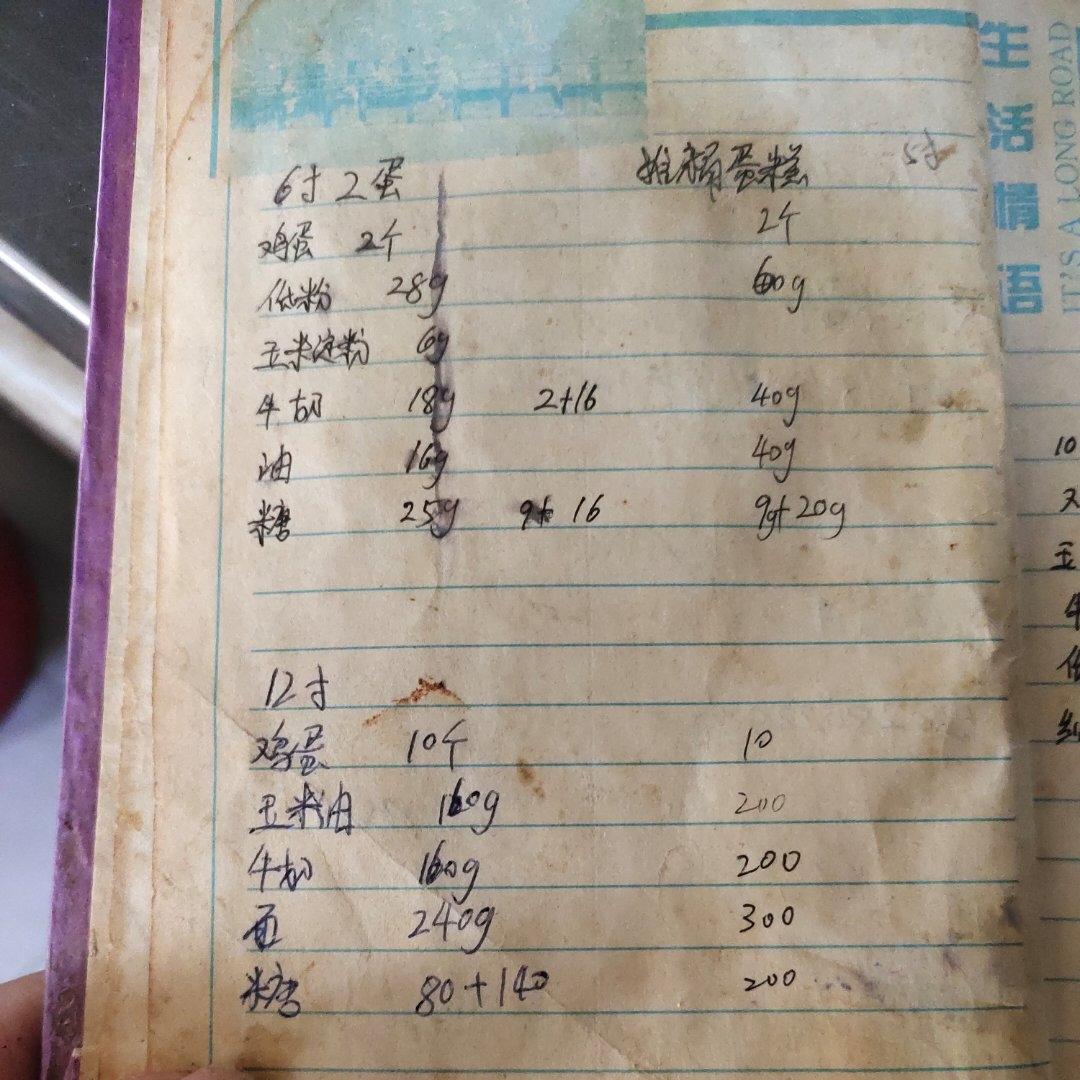 6寸2蛋 推楇蛋糕 5寸
鸡蛋 2个 2个
低粉 28g 60g
玉米淀粉 6g
牛奶 18g 2+16 40g
油 16g 40g
糖 25g 9+16 9g+20g
12寸
鸡蛋 10个 10
玉米油 160g 200
牛奶 160g 200
面 240g 300
糖 80+140 200
生活情语
IT'S A LONG ROAD
10
玉
牛